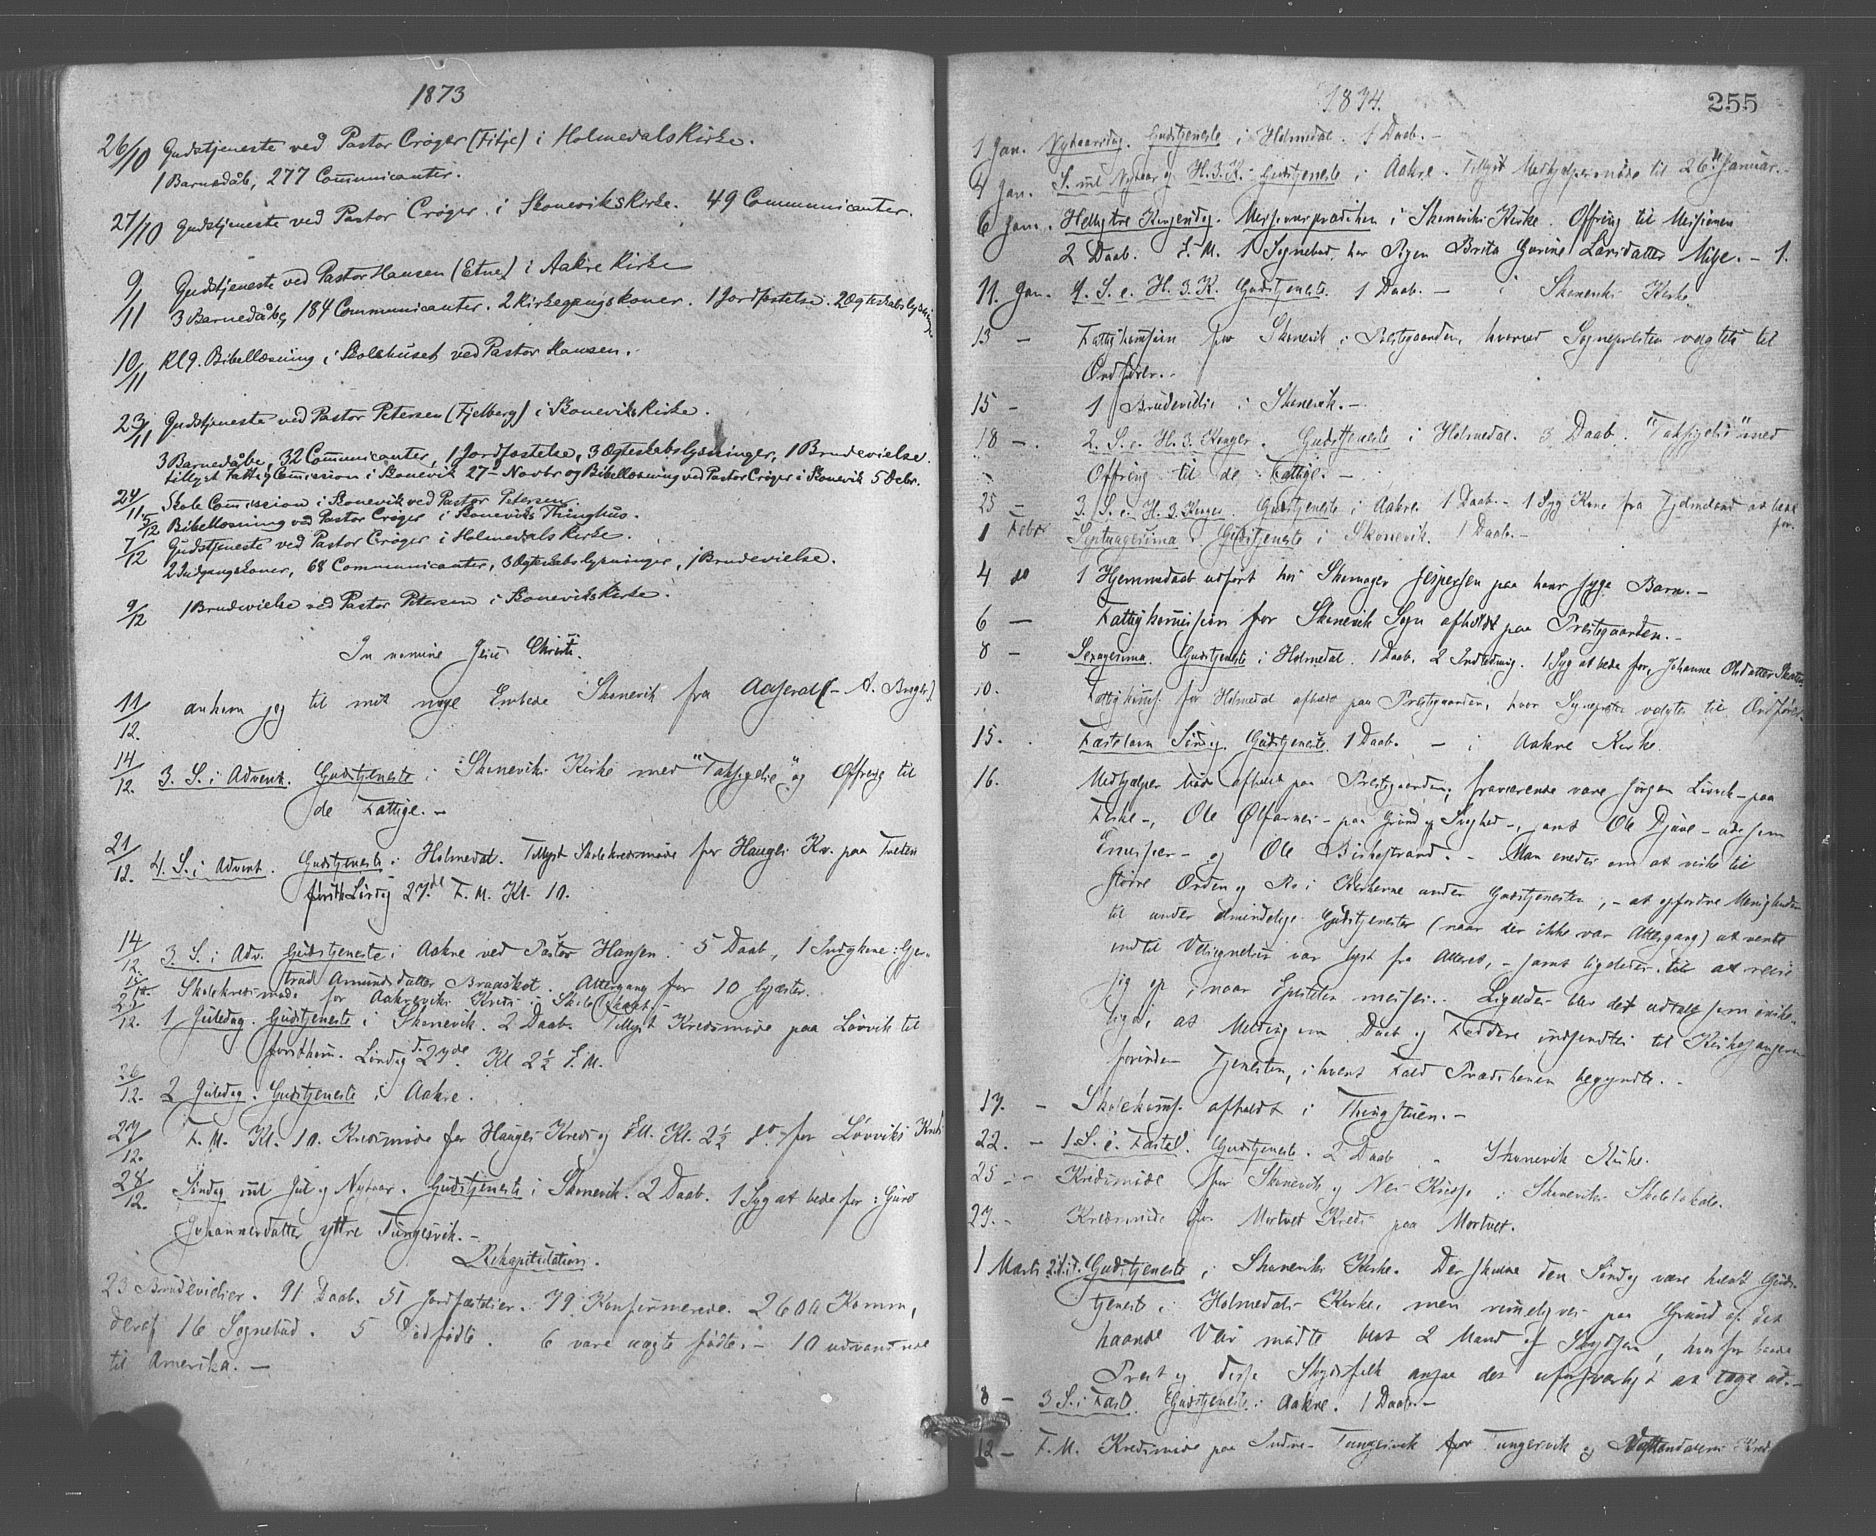 1873
26/10 Gudstjeneste ved Pastor Crøger (Fitje) i Holmedals Kirke.
1 Barnedåb, 277 Communicanter.
27/10 Gudstjeneste ved Pastor Crøger i Skonevikskirke. 49 Communicanter.
9/11 Gudstjeneste ved Pastor Hansen (Etne) i Aakre Kirke
3 Barnedåbe, 184 Communicanter. 2 Kirkegangskoner. 1 Jordfæstelse. 2 Ægteskabslysning.
10/11 Kl 9. Bibellæsning i Skolehuset ved Pastor Hansen.
23/11 Gudstjeneste ved Pastor Petersen (Fjelberg) i Skonevikskirke.
3 Barnedåbe, 32 Communicanter, 1 Jordfæstelse, 3 Ægteskabslysninger, 1 Brudevielse.
tillyst Fattig Comission i Skonevik 27de Novbr og Bibellæsning ved Pastor Crøger i Skonevik 5 Decbr.
24/11 Skole Comission i Skonevik ved Pastor Petersen.
5/12 Bibellæsning ved Pastor Crøger i Skoneviks Thinghus.
7/12 Gudstjeneste ved Pastor Crøger i Holmedals Kirke.
2 Indgangskoner, 68 Communicanter, 3 Ægteskabslysninger, 1 Brudevielse.
9/12 1 Brudevielse ved Pastor Petersen i Skonevikskirke.
In nomine Jesu Christi.
11/12. ankom jeg til mit nye Embede Skonevik fra Aaseral (- A. Bugge)
14/12. 3. S. i Advent. Gudstjeneste i Skoneviks Kirke med "Taksigelse" og Offring til
de Fattige. -
21/12. 4. S. i Advent. Gudstjeneste i Holmedal. Tillyst Skolekredsmøde for Hauges Kr. paa Tveten
førstk. Lørdag 27de F. M. Kl. 10.
14/12. 3. S. i Adv. Gudstjeneste i Aakre ved Pastor Hansen. 5 Daab, 1 Indgkone: Gje-
trud Amundsdatter Braaskot. Altergang for 10 Gjæster.
15/12. Skolekredsmøde for Aakreviks Kreds i Skolelokalet. -
25/12. 1 Juledag. Gudstjeneste i Skonevik. 2 Daab. Tillyst Kredsmøde paa Løvvik til
førstkom. Lørdag d. 27de Kl 2½ E. M.
26/12. 2 Juledag. Gudstjeneste i Aakre.
27/12. F. M. Kl. 10. Kredsmøde for Hauges Kreds og EM. Kl. 2½ do. for Løvviks Kreds
28/12. Søndag ml Jul og Nytaar. Gudstjeneste i Skonevik. 2 Daab. 1 Syg at bede for: Guro
Johannesdatter yttre Tungesvik. -
Rekapitulation.
23 Brudevielser. 91 Daab. 51 Jordfæstelser. 79 Konfirmerede. 2600 Komm,
deraf 16 Sognebud. 5 Dødfødte. 6 vare uægte fødte. - 10 udvandrede
til Amerika. -
1874.
255
1 Jan. Nytaarsdag. Gudstjeneste i Holmedal. 1 Daab. -
4 Jan. S. ml Nytaar og H. 3. K. Gudstjeneste i Aakre. Tillyst Medhjelpermøde til 26de Januar. -
6 Jan. Helligtre Kongersdag. Missionspræiken i Skoneviks Kirke. Offring til Missionen
2 Daab. E. M. 1 Sognebud, hos Pigen Brita Gurine Larsdatter Milje. - 1.
11. Jan. 1. S. e. H. 3. K. Gudstjeneste. 1 Daab. - i Skoneviks Kirke.
13 - Fattigkomission for Skonevik i Prestegaarden, hvorved Sognepresten valgtes til
Ordfører. -
15 - 1 Brudevielse i Skonevik. -
18 - 2. S. e. H. 3. Konger. Gudstjeneste i Holmedal. 3 Daab. "Taksigelse" med
Offring til de Fattige. -
25 - 3. S. e. H. 3. Konger. Gudstjeneste i Aakre. 1 Daab. - 1 Syg Kone fra Fjelmeland at bede for.
1 Febr Septuagesima Gudstjeneste i Skonevik. 1 Daab. -
4 do 1 Hjemmedaab udført hos Skomager Jespersen paa hans syge Barn. -
6 - Fattigkomission for Skonevik Sogn afholdt paa Prestegaarden. -
8 - Sexagesima. Gudstjeneste i Holmedal. 1 Daab. 2 Indledning. 1 Syg at bede for, Johanne Olsdatter
10. Fattigkomss. for Holmedal afholdt paa Prestegaarden, hvor Sognepresten valgtes til Ordfører
15. Fastelavn Søndag. Gudstjeneste. 1 Daab. - i Aakre Kirke.
16. Medhjælpermøde afholdt paa Prestegaarden; fraværende vare Jørgen Løvvik - paa
Fiske -, Ole Ølfarnes - paa Grund af Svaghed -, samt Ole Djuve - ude som
Emissær - og Ole Birkestrand. - Man enedes om at virke til
større Orden og Ro i Kirkerne under Gudstjenesten, - at opfordre Menigheden
til under almindelige Gudstjenester (naar der ikke var Altergang) at vente
indtil Velsignelsen var lyst fra Alteret, - samt ligeledes til at reise
sig op, naar Epistelen messes. Ligeledes blev det udtalt som ønske-
ligt, at Melding om Daab og Faddere indsendtes til Kirkesangeren
forinden Tjenesten, i hvert Fald Prædikenen begyndte. -
17. - Skolekomss. afholdt i Thingstuen. -
22. - 1. S. i Fasten. Gudstjeneste. 2 Daab - Skonevik Kirke.
25 - - Kredsmøde for Skonevik og Nes Kredse i Skoneviks Skolelokale.
27. - Kredsmøde for Mortvet Kreds paa Mortvet.
1 Marts 2. S. i F. Gudstjeneste i Skoneviks Kirke. Der skulde den Søndag være holdt Guds-
tjeneste i Holmedals Kirke, men rimeligvis paa Grund af det
haarde Veir mødte blot 2 Mand af Skydsen, hvorfor baade
Prest og disse Skydsfolk ansaa det uforsvarligt at tage ud. -
8 - 3 S. i Fast. Gudstjeneste i Aakre. 1 Daab. -
12 - F. M. Kredsmøde paa Indre-Tungesvik for Tungesvik og Kreds